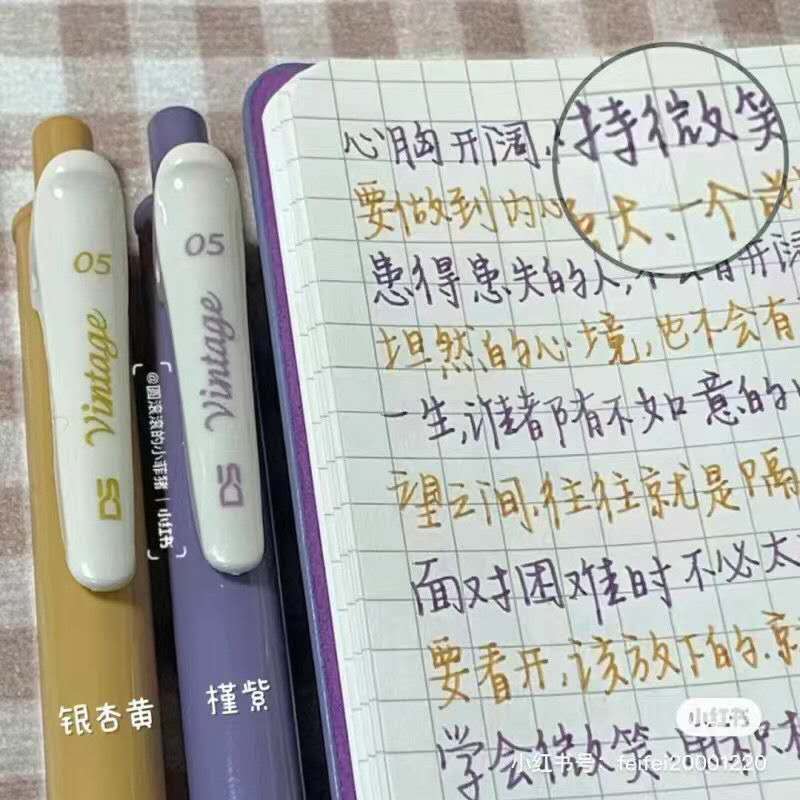 05
Vintage
DS
银杏黄
05
Vintage
DS
槿紫
@圆滚滚的小菲猪 | 小红书
持微笑
大、一个
心胸开阔,
要做到内心
患得患失的人,不会有开阔
坦然的心境,也不会有
一生,谁都有不如意的
望之间,往往就是隔
面对困难时不必太
要看开,该放下的,就
学会微笑,
小红书
小红书号:feifei20001220